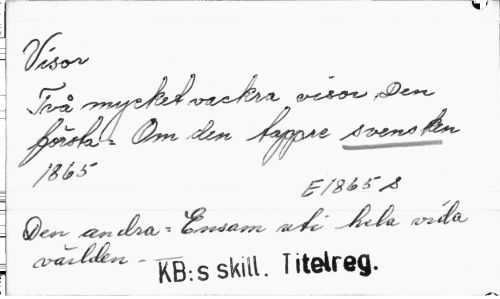 Visor
Två mycket vackra visor Den
första = Om den tappre svensken
1865
E 1865 s
Den andra = Ensam uti hela vida
världen -
KB:s skill. Titelreg.